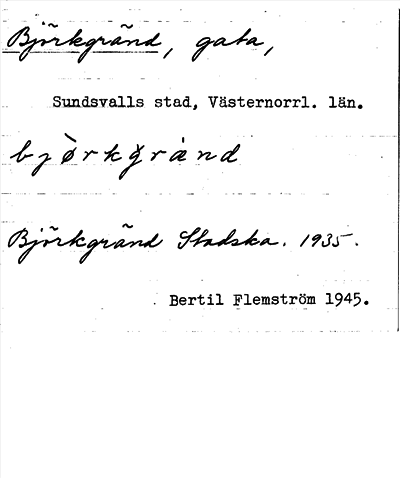 Björkgränd, gata,
Sundsvalls stad, Västernorrl. län.
Björkgränd Stadska. 1935.
Bertil Flemström 1945.